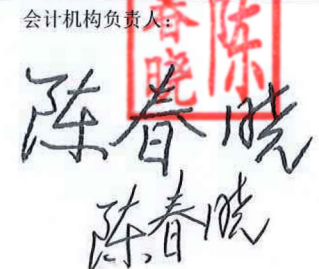 会计机构负责人：
陈春晓
陈春晓
陈春晓